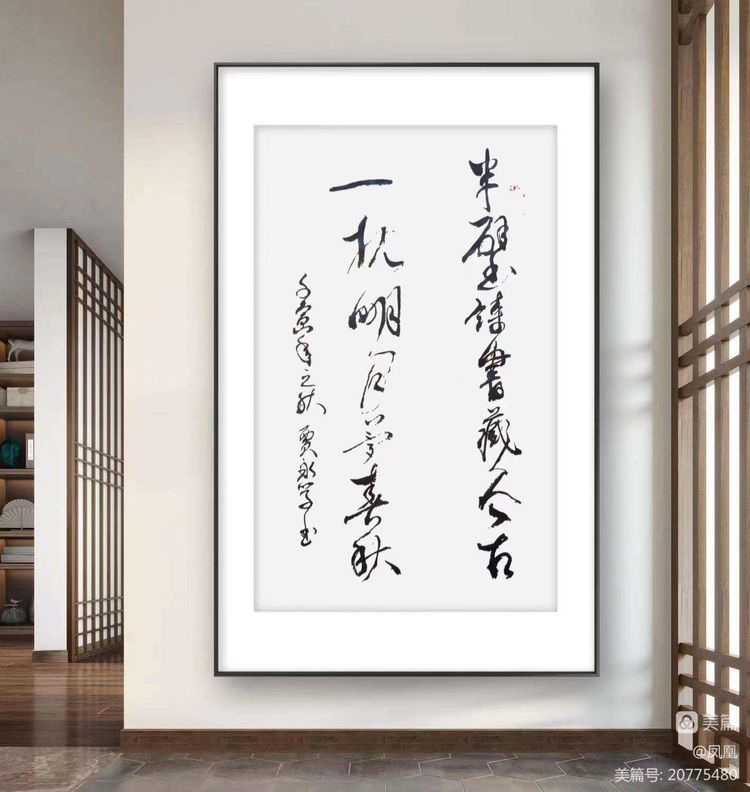 半壁诗書藏今古
一枕明月夢春秋
壬寅年之秋 贾永学书
美篇
@凤凰
美篇号: 20775480